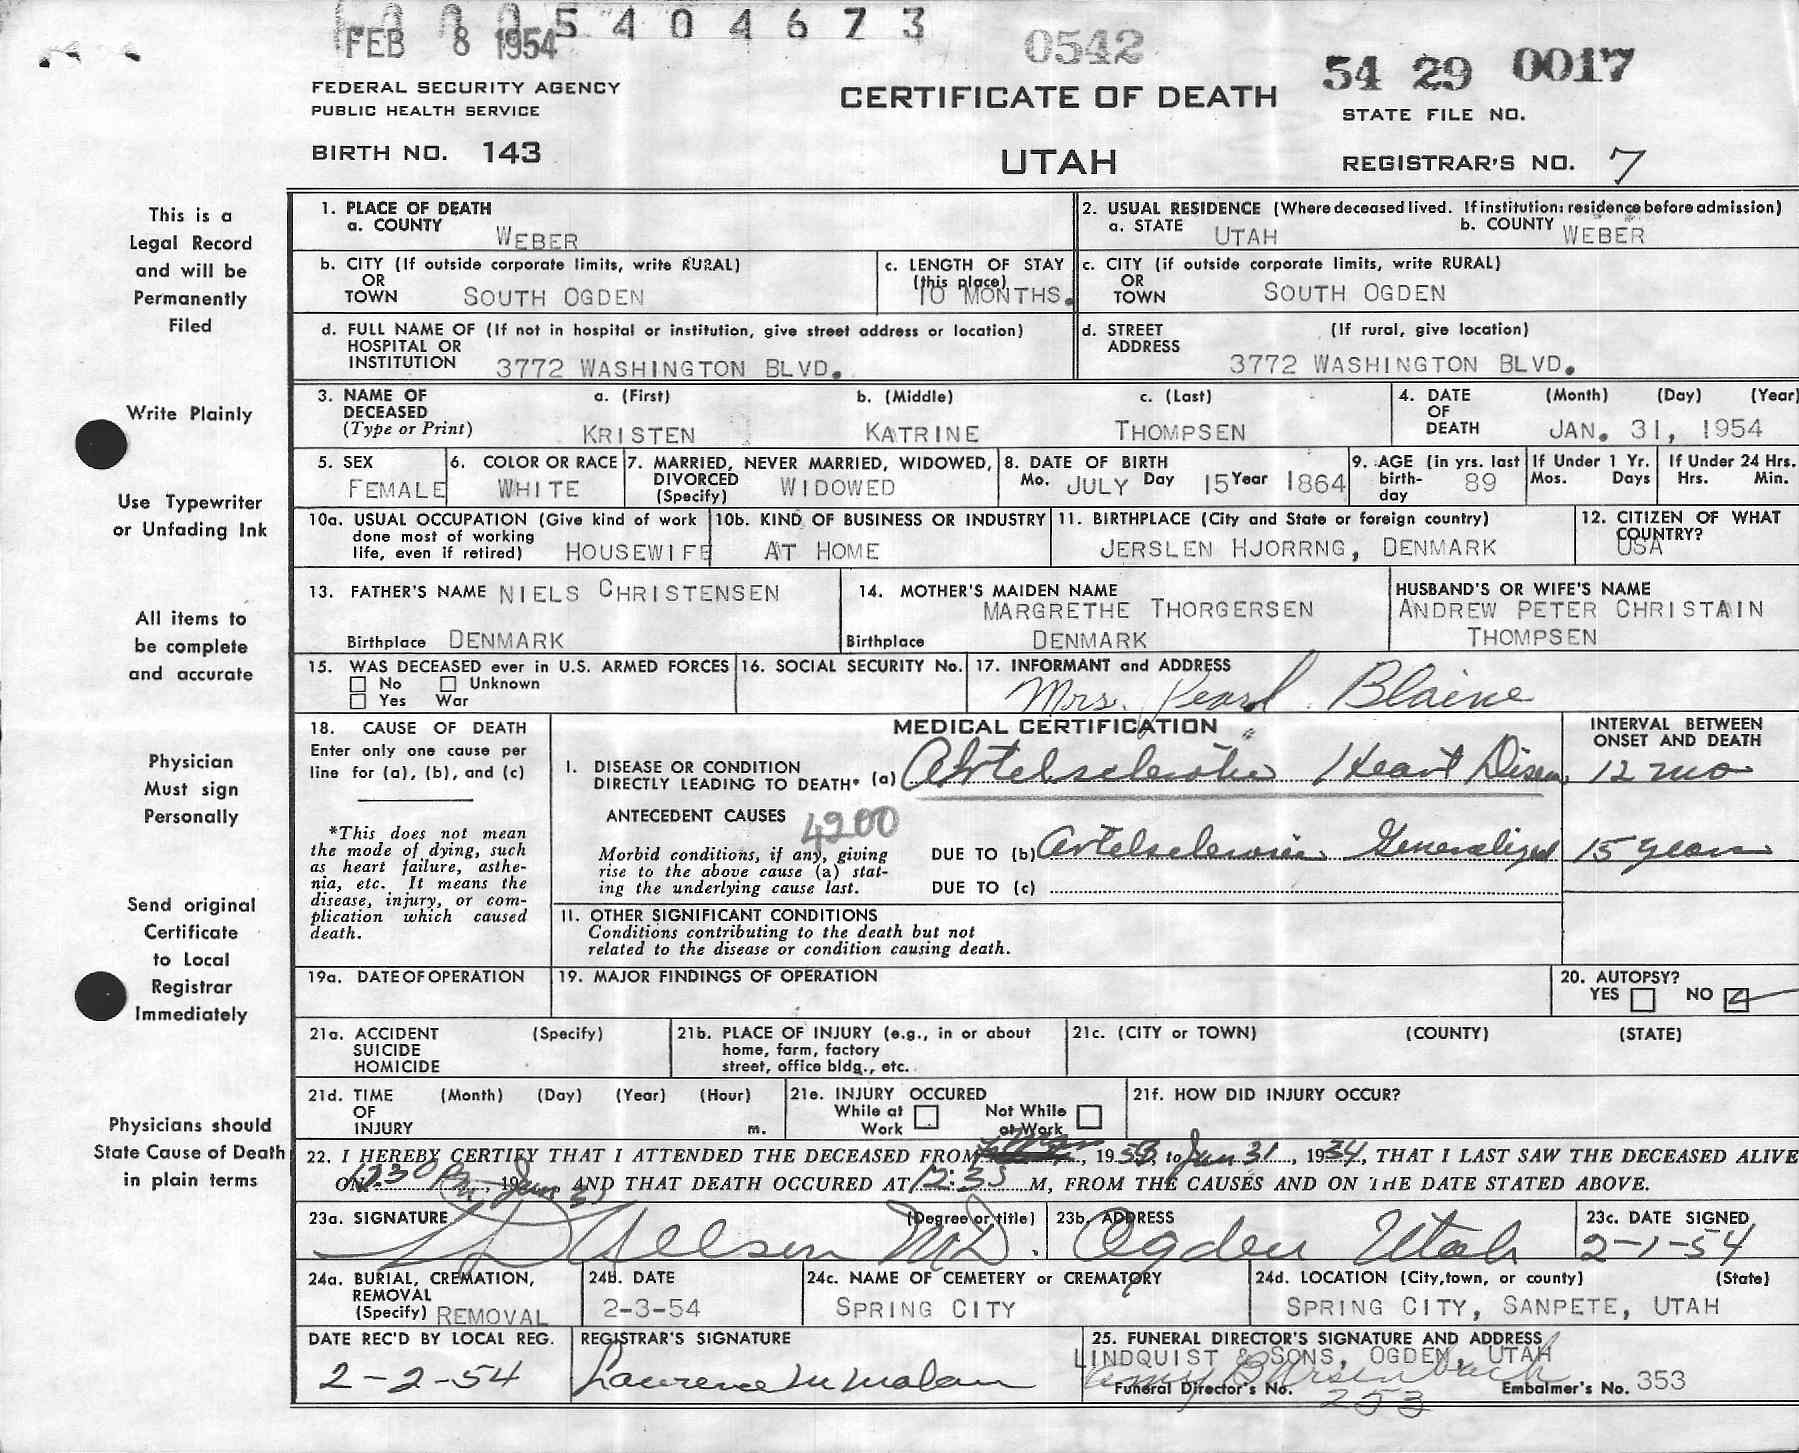 FEB 8 1954
5 4 0 4 6 7 3
0542
54 29 0017
FEDERAL SECURITY AGENCY
PUBLIC HEALTH SERVICE
CERTIFICATE OF DEATH
STATE FILE NO.
BIRTH NO. 143
UTAH
REGISTRAR'S NO. 7
This is a
Legal Record
and will be
Permanently
Filed
Write Plainly
Use Typewriter
or Unfading Ink
All items to
be complete
and accurate
Physician
Must sign
Personally
Send original
Certificate
to Local
Registrar
Immediately
Physicians should
State Cause of Death
in plain terms
1. PLACE OF DEATH
a. COUNTY WEBER
2. USUAL RESIDENCE (Where deceased lived. If institution: residence before admission)
a. STATE UTAH b. COUNTY WEBER
b. CITY (If outside corporate limits, write RURAL)
OR
TOWN SOUTH OGDEN
c. LENGTH OF STAY
(this place)
10 MONTHS.
c. CITY (if outside corporate limits, write RURAL)
OR
TOWN SOUTH OGDEN
d. FULL NAME OF (If not in hospital or institution, give street address or location)
HOSPITAL OR
INSTITUTION 3772 WASHINGTON BLVD.
d. STREET (If rural, give location)
ADDRESS
3772 WASHINGTON BLVD.
3. NAME OF a. (First) b. (Middle) c. (Last)
DECEASED
(Type or Print) KRISTEN KATRINE THOMPSEN
4. DATE (Month) (Day) (Year)
OF
DEATH JAN. 31, 1954
5. SEX
FEMALE
6. COLOR OR RACE
WHITE
7. MARRIED, NEVER MARRIED, WIDOWED,
DIVORCED
(Specify) WIDOWED
8. DATE OF BIRTH
Mo. JULY Day 15 Year 1864
9. AGE (in yrs. last
birth-
day 89
If Under 1 Yr.
Mos. Days
If Under 24 Hrs.
Hrs. Min.
10a. USUAL OCCUPATION (Give kind of work
done most of working
life, even if retired) HOUSEWIFE
10b. KIND OF BUSINESS OR INDUSTRY
AT HOME
11. BIRTHPLACE (City and State or foreign country)
JERSLEN HJORRNG, DENMARK
12. CITIZEN OF WHAT
COUNTRY?
USA
13. FATHER'S NAME NIELS CHRISTENSEN
Birthplace DENMARK
14. MOTHER'S MAIDEN NAME
MARGRETHE THORGERSEN
Birthplace DENMARK
HUSBAND'S OR WIFE'S NAME
ANDREW PETER CHRISTAIN
THOMPSEN
15. WAS DECEASED ever in U.S. ARMED FORCES
No Unknown
Yes War
16. SOCIAL SECURITY No.
17. INFORMANT and ADDRESS
Mrs. Pearl Blaine
18. CAUSE OF DEATH
Enter only one cause per
line for (a), (b), and (c)
*This does not mean
the mode of dying, such
as heart failure, asthe-
nia, etc. It means the
disease, injury, or com-
plication which caused
death.
MEDICAL CERTIFICATION
INTERVAL BETWEEN
ONSET AND DEATH
I. DISEASE OR CONDITION
DIRECTLY LEADING TO DEATH* (a) Heart Disease 12 mo
ANTECEDENT CAUSES
4200
Morbid conditions, if any, giving
rise to the above cause (a) stat-
ing the underlying cause last.
DUE TO (b) Generalized 15 years
DUE TO (c)
II. OTHER SIGNIFICANT CONDITIONS
Conditions contributing to the death but not
related to the disease or condition causing death.
19a. DATE OF OPERATION
19. MAJOR FINDINGS OF OPERATION
20. AUTOPSY?
YES NO
21a. ACCIDENT (Specify)
SUICIDE
HOMICIDE
21b. PLACE OF INJURY (e.g., in or about
home, farm, factory
street, office bldg., etc.
21c. (CITY or TOWN) (COUNTY) (STATE)
21d. TIME (Month) (Day) (Year) (Hour)
OF
INJURY m.
21e. INJURY OCCURED
While at Not While
Work at Work
21f. HOW DID INJURY OCCUR?
22. I HEREBY CERTIFY THAT I ATTENDED THE DECEASED FROM 1953, to Jan 31, 1954, THAT I LAST SAW THE DECEASED ALIVE
ON 12:30 Pm, 19 Jan 31 AND THAT DEATH OCCURED AT 12:35 M, FROM THE CAUSES AND ON THE DATE STATED ABOVE.
23a. SIGNATURE (Degree or title)
M.D.
23b. ADDRESS
Ogden Utah
23c. DATE SIGNED
2-1-54
24a. BURIAL, CREMATION,
REMOVAL
(Specify) REMOVAL
24b. DATE
2-3-54
24c. NAME OF CEMETERY or CREMATORY
SPRING CITY
24d. LOCATION (City, town, or county) (State)
SPRING CITY, SANPETE, UTAH
DATE REC'D BY LOCAL REG.
2-2-54
REGISTRAR'S SIGNATURE
Lawrence M Malan
25. FUNERAL DIRECTOR'S SIGNATURE AND ADDRESS
LINDQUIST & SONS, OGDEN, UTAH
Funeral Director's No. 253
Embalmer's No. 353